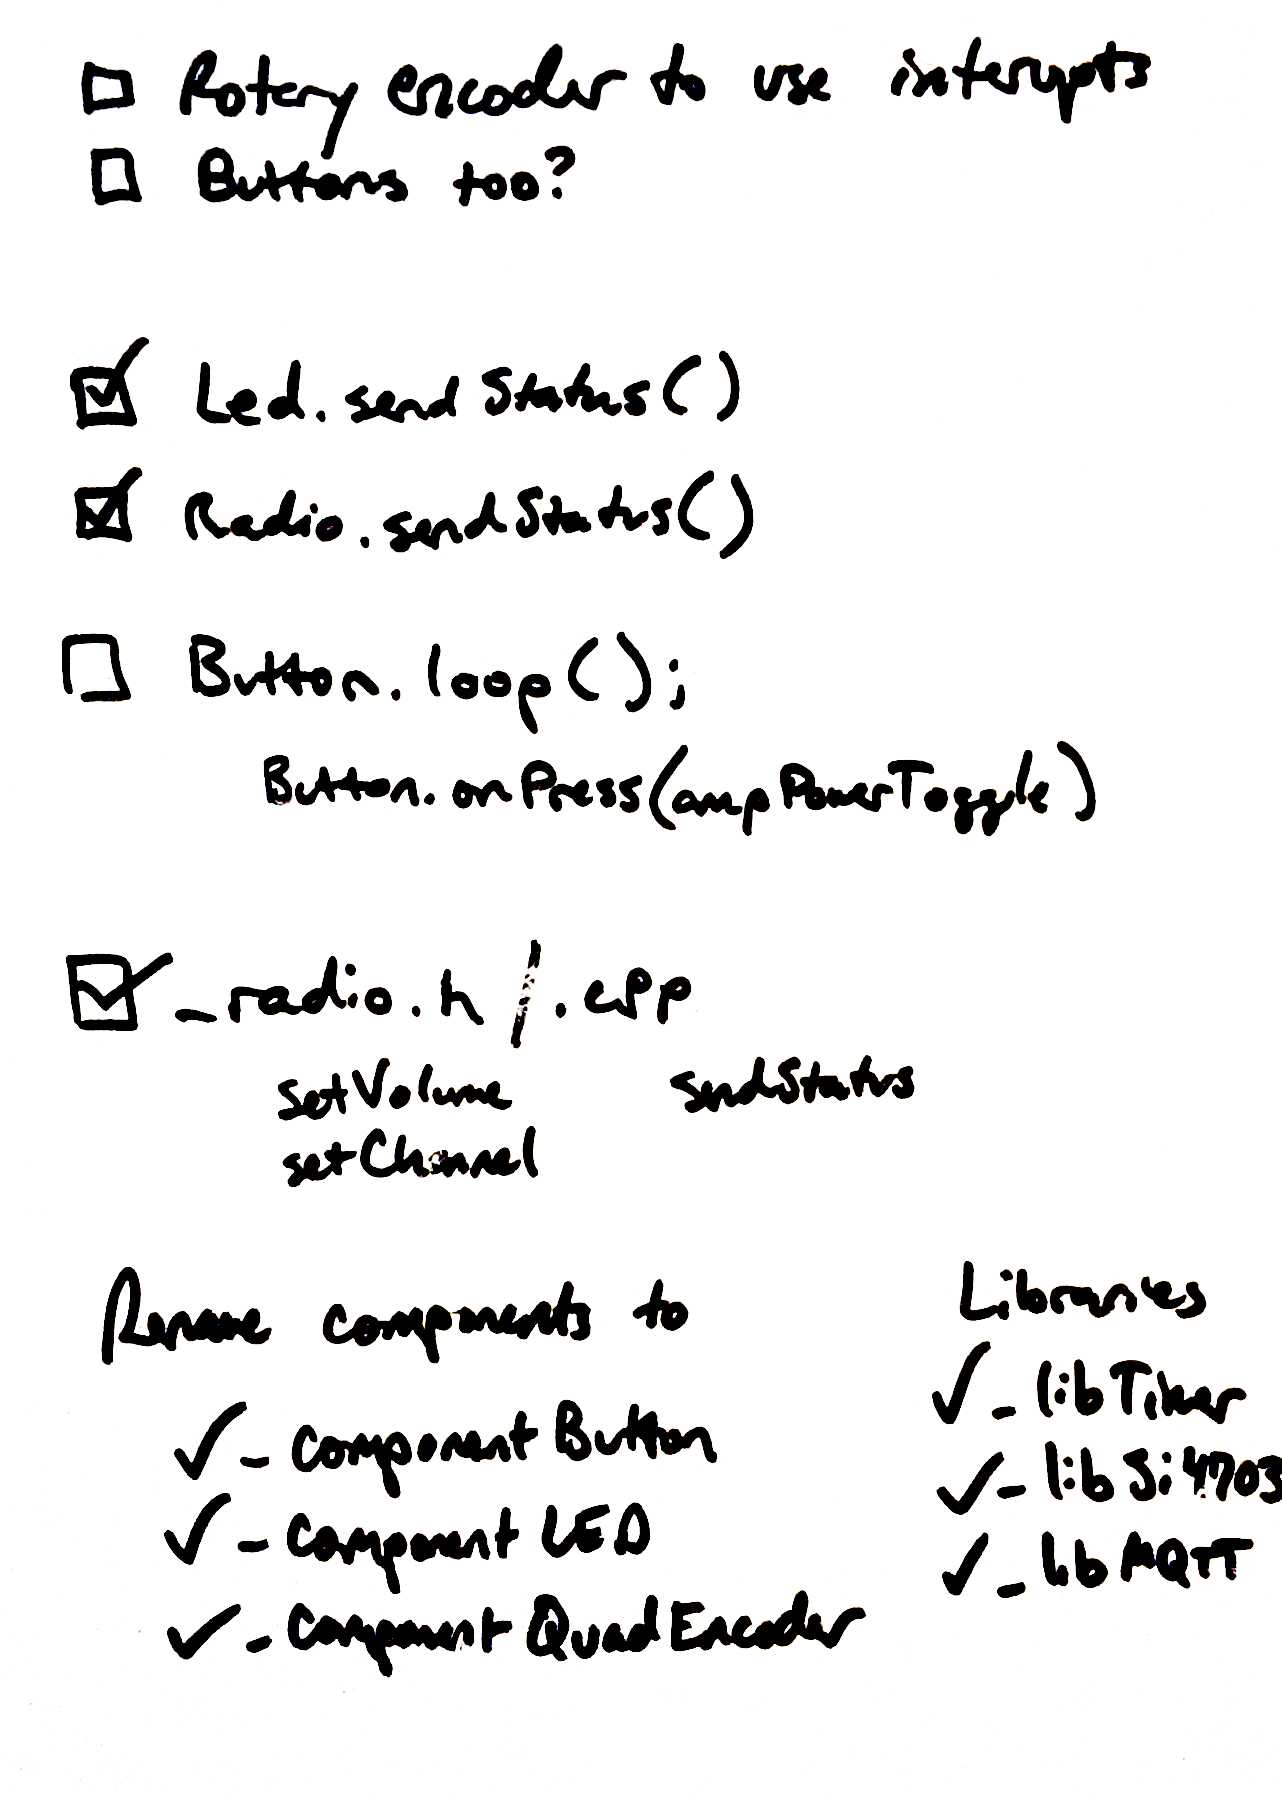 ☐ Rotary encoder to use interupts
☐ Buttons too?
☑ Led.sendStatus()
☑ Radio.sendStatus()
☐ Button.loop();
Button.onPress(ampPowerToggle)
☑ _radio.h / .cpp
setVolume sendStatus
setChannel
Rename components to
✓ - componentButton
✓ - componentLED
✓ - componentQuadEncoder
Libraries
✓ - libTimer
✓ - libSi4703
✓ - libMQTT